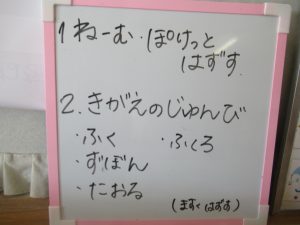 1 ねーむ・ぽけっと
はずす
2.きがえのじゅんび
・ふく ・ふくろ
・ずぼん
・たおる
(ますくはずす)